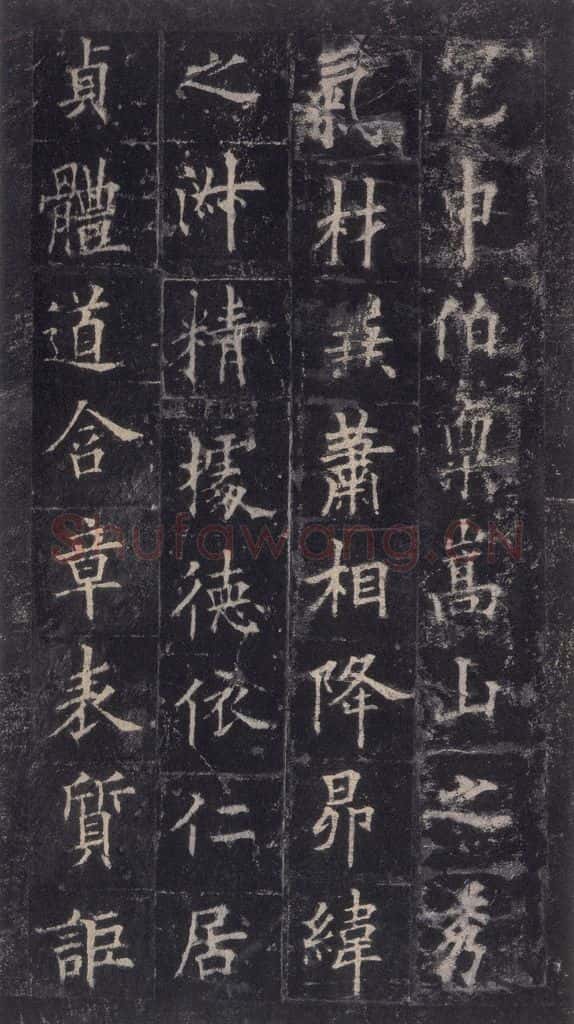 包申伯稟嵩山之秀
氣材兼蕭相降昴緯
之淑精據德依仁居
貞體道含章表質詎
Shufawang.CN